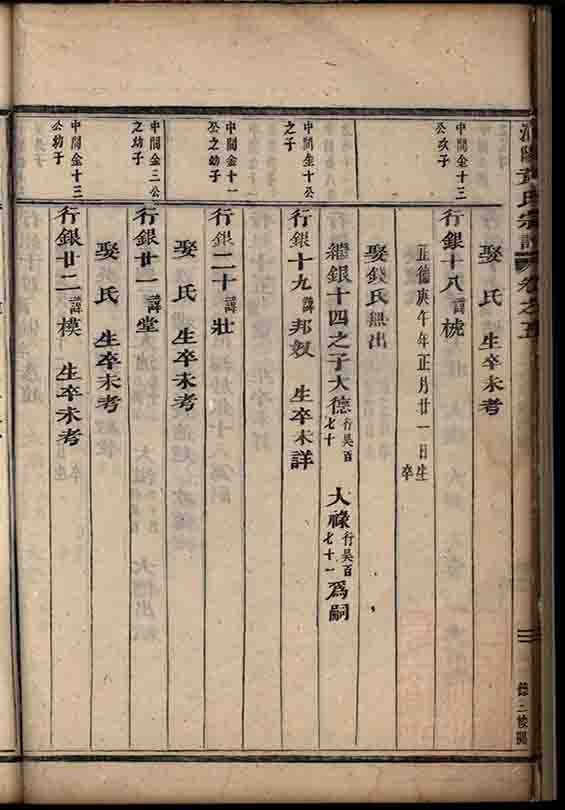 黃氏宗譜 卷之五
娶 氏 生卒未考
中閣金十三
公次子
行銀十八諱梡
正德庚午年正月廿一日生
卒
娶錢氏無出
繼銀十四之子大德行吳百七十 大祿行吳百七十一爲嗣
中閣金十公
之子
行銀十九諱邦奴 生卒未詳
中閣金十一
公之幼子
行銀二十諱壯
娶 氏 生卒未考
中閣金三公
之幼子
行銀廿一諱堂
娶 氏 生卒未考
中閣金十三
公幼子
行銀廿二諱模 生卒未考